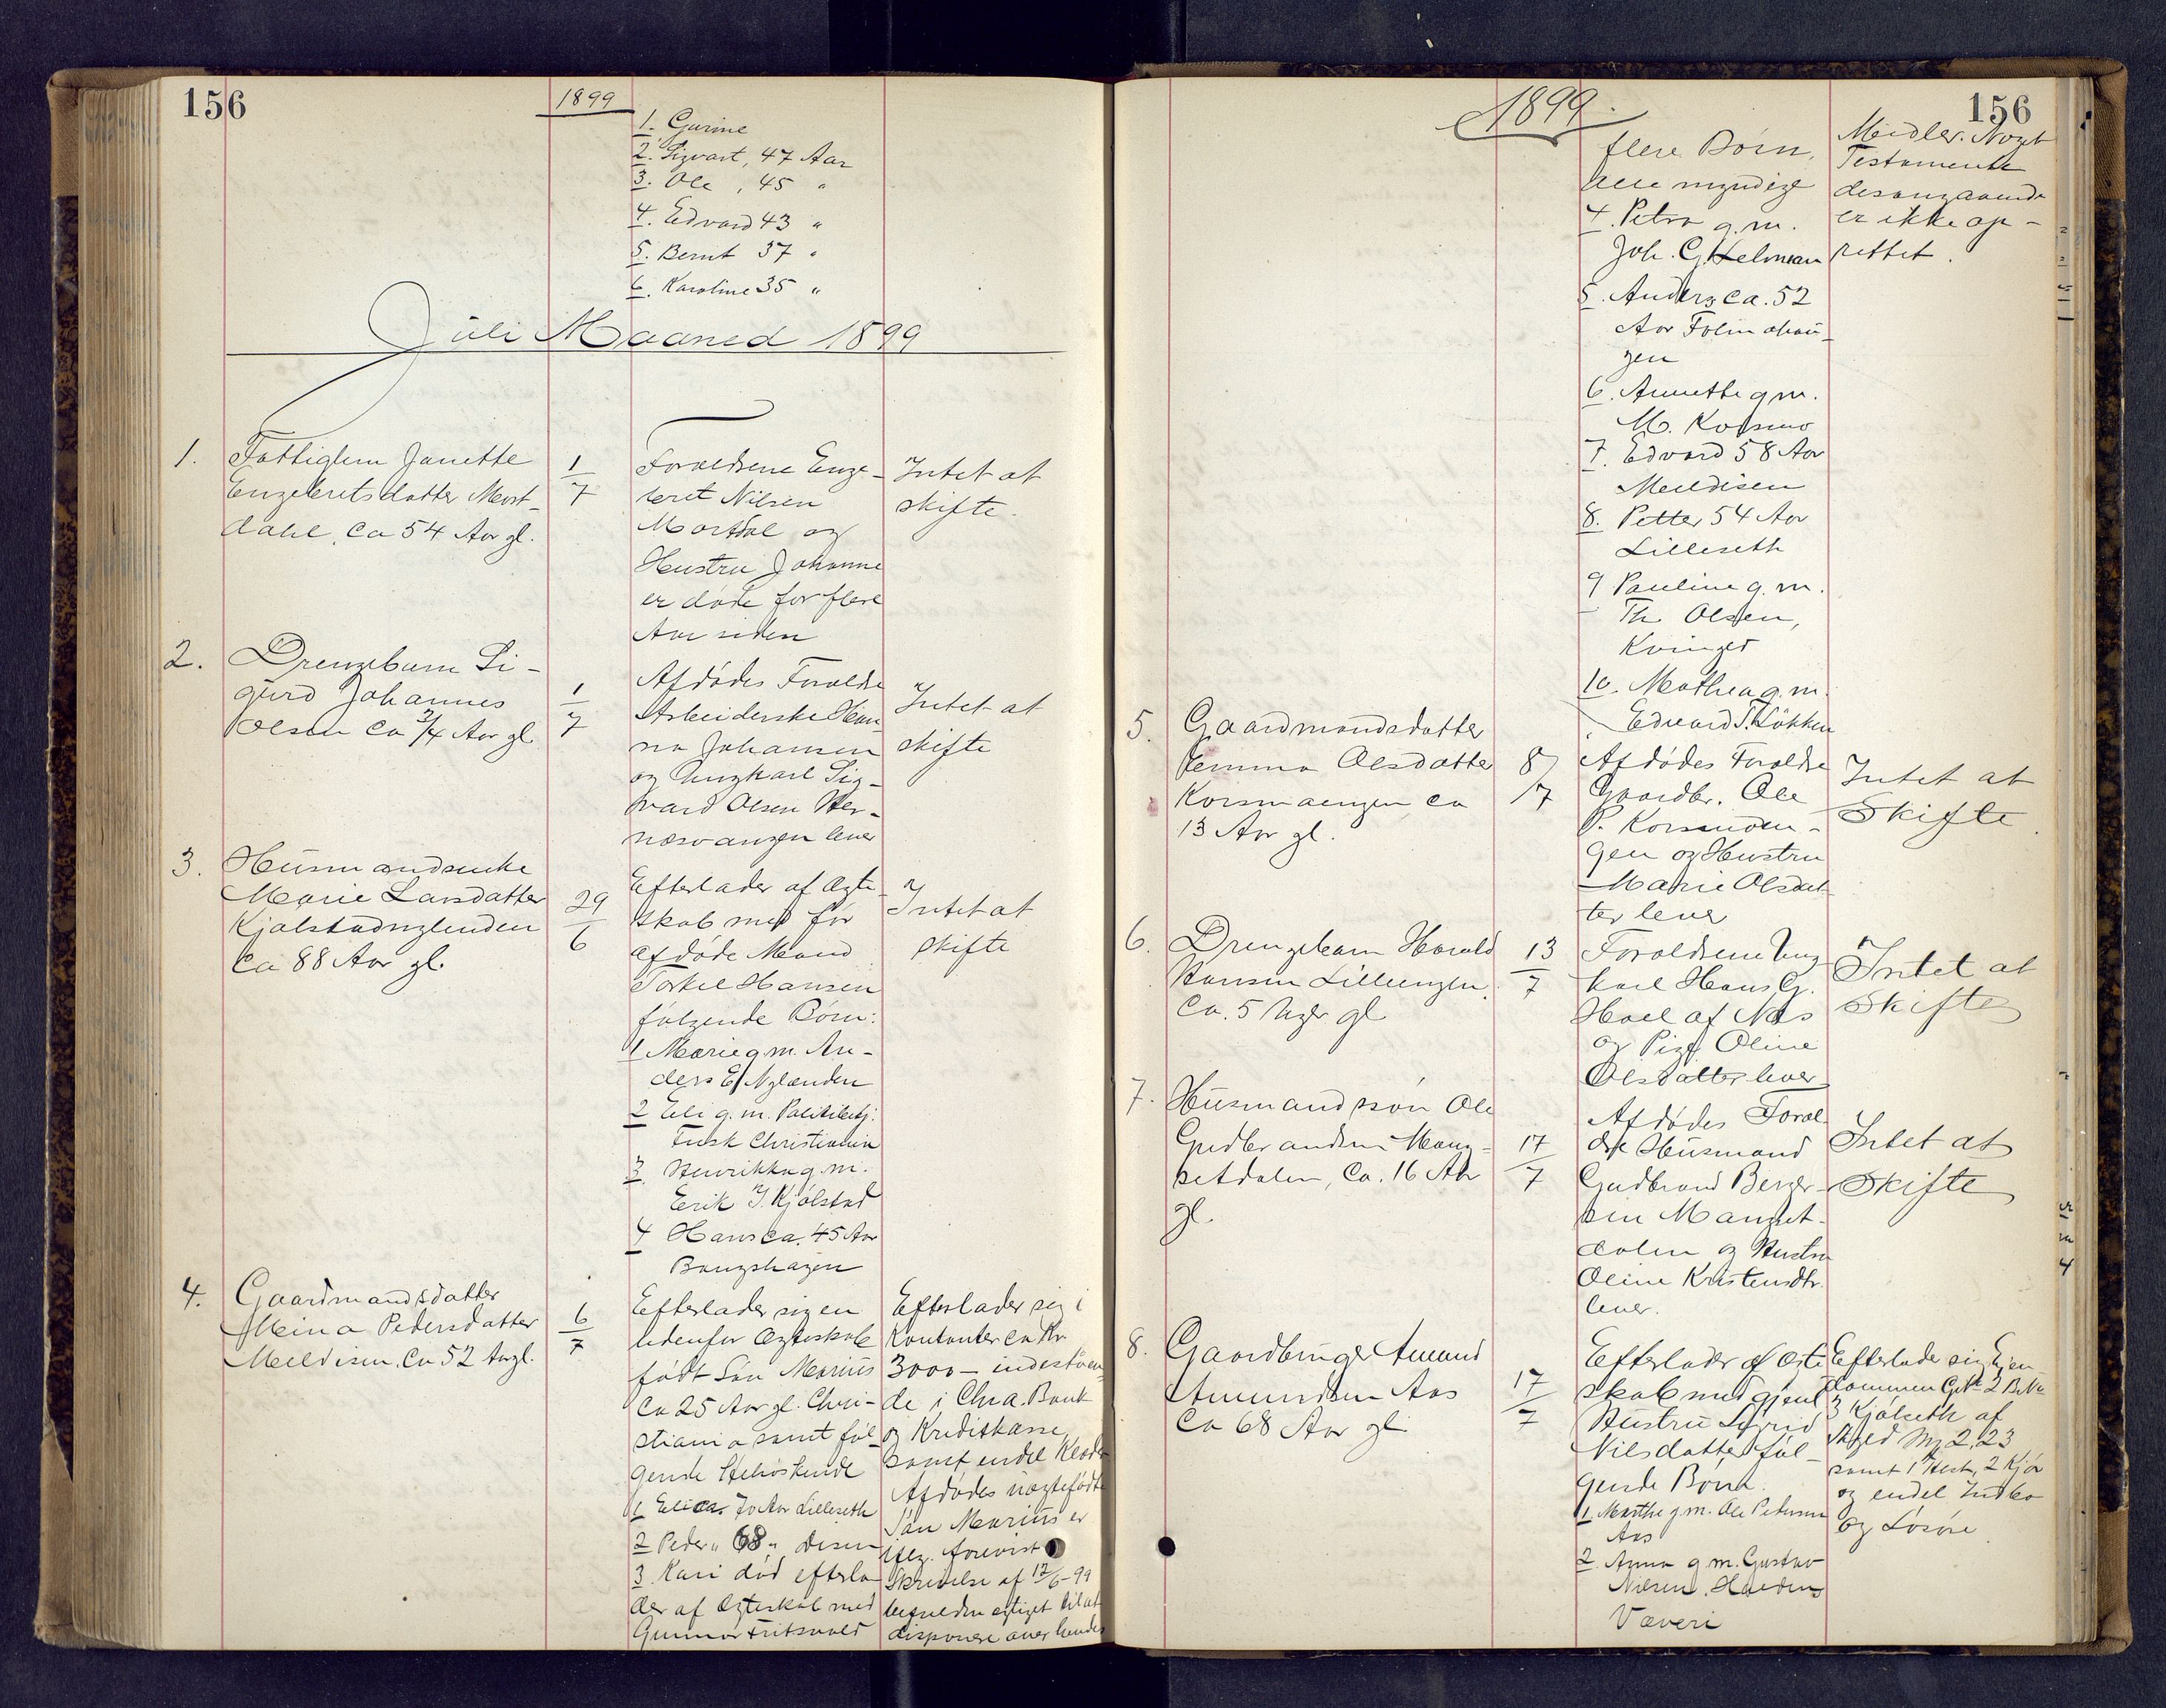 156
1899
1. Gurine
2. Sigvart, 47 Aar
3. Ole, 45 "
4. Edvard 43 "
5. Bernt 37 "
6. Karoline 35 "
Juli Maaned 1899
1.
Fattiglem Janette
Engebretsdatter Mort-
dahl, ca 54 Aar gl.
1/7
Forældrene Enge-
bret Nilsen
Mortdal og
Hustru Johanne
er døde for flere
Aar siden
Intet at
skifte.
2.
Drengebarn Si-
gurd Johannes
Olsen ca 3/4 Aar gl
1/7
Afdødes Forældre
Arbeiderske Han-
na Johansen
og Ungkarl Sig-
vard Olsen Her-
næsvangen lever
Intet at
skifte
3.
Husmandsenke
Marie Larsdatter
Kjølstadnylenden
ca 88 Aar gl.
29/6
Efterlader af Ægte-
skab med før
afdøde Mand
Torkel Hansen
følgende Børn:
1 Marie g.m. An-
ders E. Nylænden
2 Eli g.m. Politibetj.
Fusk Christiania
3. Henrikka g.m.
Erik J. Kjølstad
4 Hans ca. 45 Aar
Bangshagen
Intet at
skifte
4.
Gaardmandsdatter
Mina Pedersdatter
Melldisen. Ca 52 Aar gl.
6/7
Efterlader sig en
udenfor Ægteskab
født Søn Marius
Ca 25 Aar gl. Chri-
stiania samt føl-
gende Helsøskende
1 Eli ca. 70 Aar Lilleseth
2 Peder " 68 " Disen
3 Kari død efterla-
der af Ægteskab med
Gunnar Fritsvold
Efterlader sig i
Kontanter ca Kr
3000 – indestaaen-
de i Chra. Bank
og Kreditkasse
samt endel Klæder
Afdødes uægtefødte
Søn Marius er
iflg. forevist
Skrivelse af 12/6-99
befuldmægtiget til at
disponere over hendes
1899.
156
flere Børn,
alle myndige
4. Petra g.m.
Joh. G. Helmsen
5. Anders ca. 52
Aar Folin
gen
6. Annette g m.
M. Korsmo
7. Edvard 58 Aar
Melldisen
8. Petter 54 Aar
Lilleseth
9 Pauline g. m.
Th Olsen,
Kvinger
10. Mathea g. m.
Edvard T. Løkken
Midler. Noget
Testamente
desangaaende
er ikke op-
rettet.
5.
Gaardmandsdatter
Emma Olsdatter
Korsmoengen ca
13 Aar gl.
8/7
Afdødes Forældre
Gaardbr. Ole
P. Korsmoen-
gen og Hustru
Marie Olsdat-
ter lever
Intet at
Skifte.
6.
Drengebarn Harald
Hansen Lilleengen.
Ca. 5 Uger gl
13/7
Forældrene Ung-
karl Hans G.
Hoel af Næs
og Pige Oline
Olsdatter lever
Intet at
Skifte
7.
Husmandssøn Ole
Gudbrandsen Mang-
setdalen, Ca. 16 Aar
gl.
17/7
Afdødes Foræl-
dre Husmand
Gudbrand Berger-
sen Mangset-
dalen og Hustru
Oline Kristensdtr.
lever.
Intet at
Skifte
8.
Gaardbruger Amund
Amundsen Aas
Ca 68 Aar gl
17/7
Efterlader af Ægte-
skab med gjenl
Hustru Sigrid
Nilsdatter føl-
gende Børn.
1. Marthe g m. Ole Pedersen
Aas
2. Anna g m. Gustav
Nilsen, Halden
Væveri
Efterlader sig Ejen-
dommen GNr 2 BNr
3 Kjølseth af
Skyld Mg 2,23
samt 1 Hest, 2 Kjør
og endel Indbo
og Løsøre